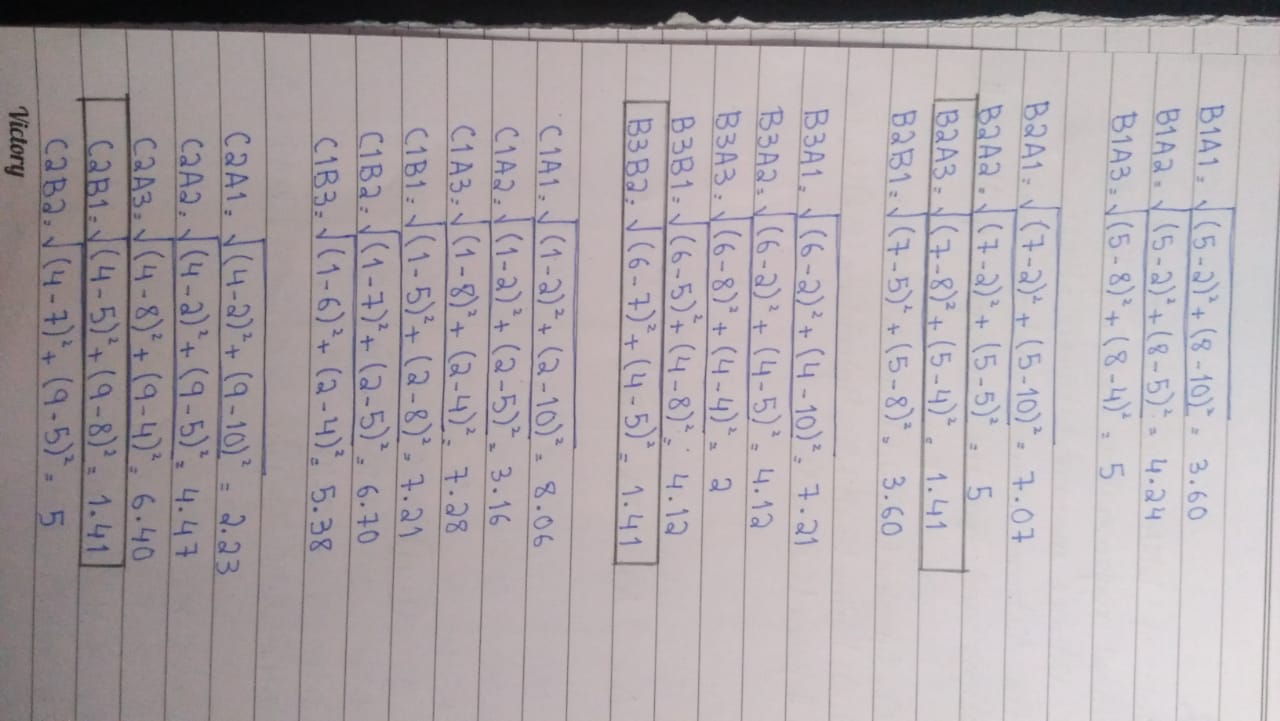 B1A1 = √(5-2)² + (8-10)² = 3.60
B1A2 = √(5-2)² + (8-5)² = 4.24
B1A3 = √(5-8)² + (8-4)² = 5
B2A1 = √(7-2)² + (5-10)² = 7.07
B2A2 = √(7-2)² + (5-5)² = 5
B2A3 = √(7-8)² + (5-4)² = 1.41
B2B1 = √(7-5)² + (5-8)² = 3.60
B3A1 = √(6-2)² + (4-10)² = 7.21
B3A2 = √(6-2)² + (4-5)² = 4.12
B3A3 = √(6-8)² + (4-4)² = 2
B3B1 = √(6-5)² + (4-8)² = 4.12
B3B2 = √(6-7)² + (4-5)² = 1.41
C1A1 = √(1-2)² + (2-10)² = 8.06
C1A2 = √(1-2)² + (2-5)² = 3.16
C1A3 = √(1-8)² + (2-4)² = 7.28
C1B1 = √(1-5)² + (2-8)² = 7.21
C1B2 = √(1-7)² + (2-5)² = 6.70
C1B3 = √(1-6)² + (2-4)² = 5.38
C2A1 = √(4-2)² + (9-10)² = 2.23
C2A2 = √(4-2)² + (9-5)² = 4.47
C2A3 = √(4-8)² + (9-4)² = 6.40
C2B1 = √(4-5)² + (9-8)² = 1.41
C2B2 = √(4-7)² + (9-5)² = 5
Victory